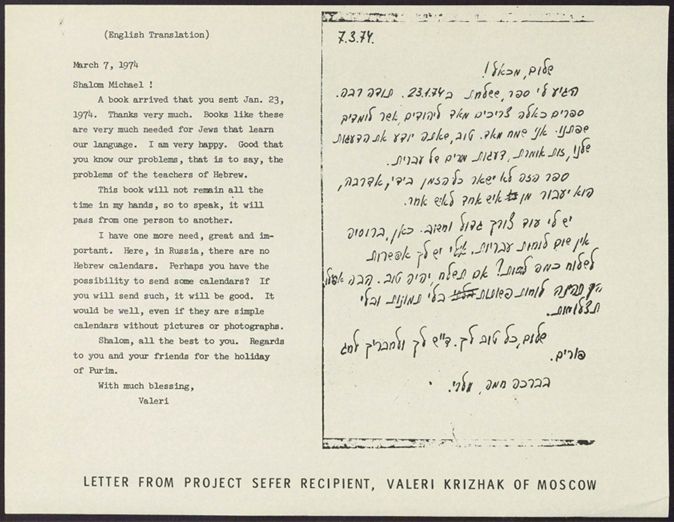 (English Translation)
March 7, 1974
Shalom Michael !
A book arrived that you sent Jan. 23,
1974. Thanks very much. Books like these
are very much needed for Jews that learn
our language. I am very happy. Good that
you know our problems, that is to say, the
problems of the teachers of Hebrew.
This book will not remain all the
time in my hands, so to speak, it will
pass from one person to another.
I have one more need, great and im-
portant. Here, in Russia, there are no
Hebrew calendars. Perhaps you have the
possibility to send some calendars? If
you will send such, it will be good. It
would be well, even if they are simple
calendars without pictures or photographs.
Shalom, all the best to you. Regards
to you and your friends for the holiday
of Purim.
With much blessing,
Valeri
7.3.74.
שלום, מכאל!
הגיע לי ספר, ששלחת ב 23.1.74. תודה רבה.
ספרים כאלה צריכים מאד ליהודים, אשר לומדים
שפתנו. אני שמח מאד. טוב, שאתה יודע את הדעגות
שלנו, זאת אומרת, דעגות מורים של עברית.
ספר הזה לא ישאר כל הזמן בידי, אדרבה,
הוא יעבור מן איש אחד לאיש אחר.
יש לי עוד צורך גדול וחשוב. כאן, ברוסיה
אין שום לוחות עבריות. אולי יש לך אפשרות
לשלוח כמה לוחות? אם תשלח, יהיה טוב.
לוחות פשוטות בלי תמונות ובלי
תצלומות.
שלום, כל טוב לך. ד"ש לך ולחבריך לחג
פורים.
בברכה חמה, ולרי.
LETTER FROM PROJECT SEFER RECIPIENT, VALERI KRIZHAK OF MOSCOW